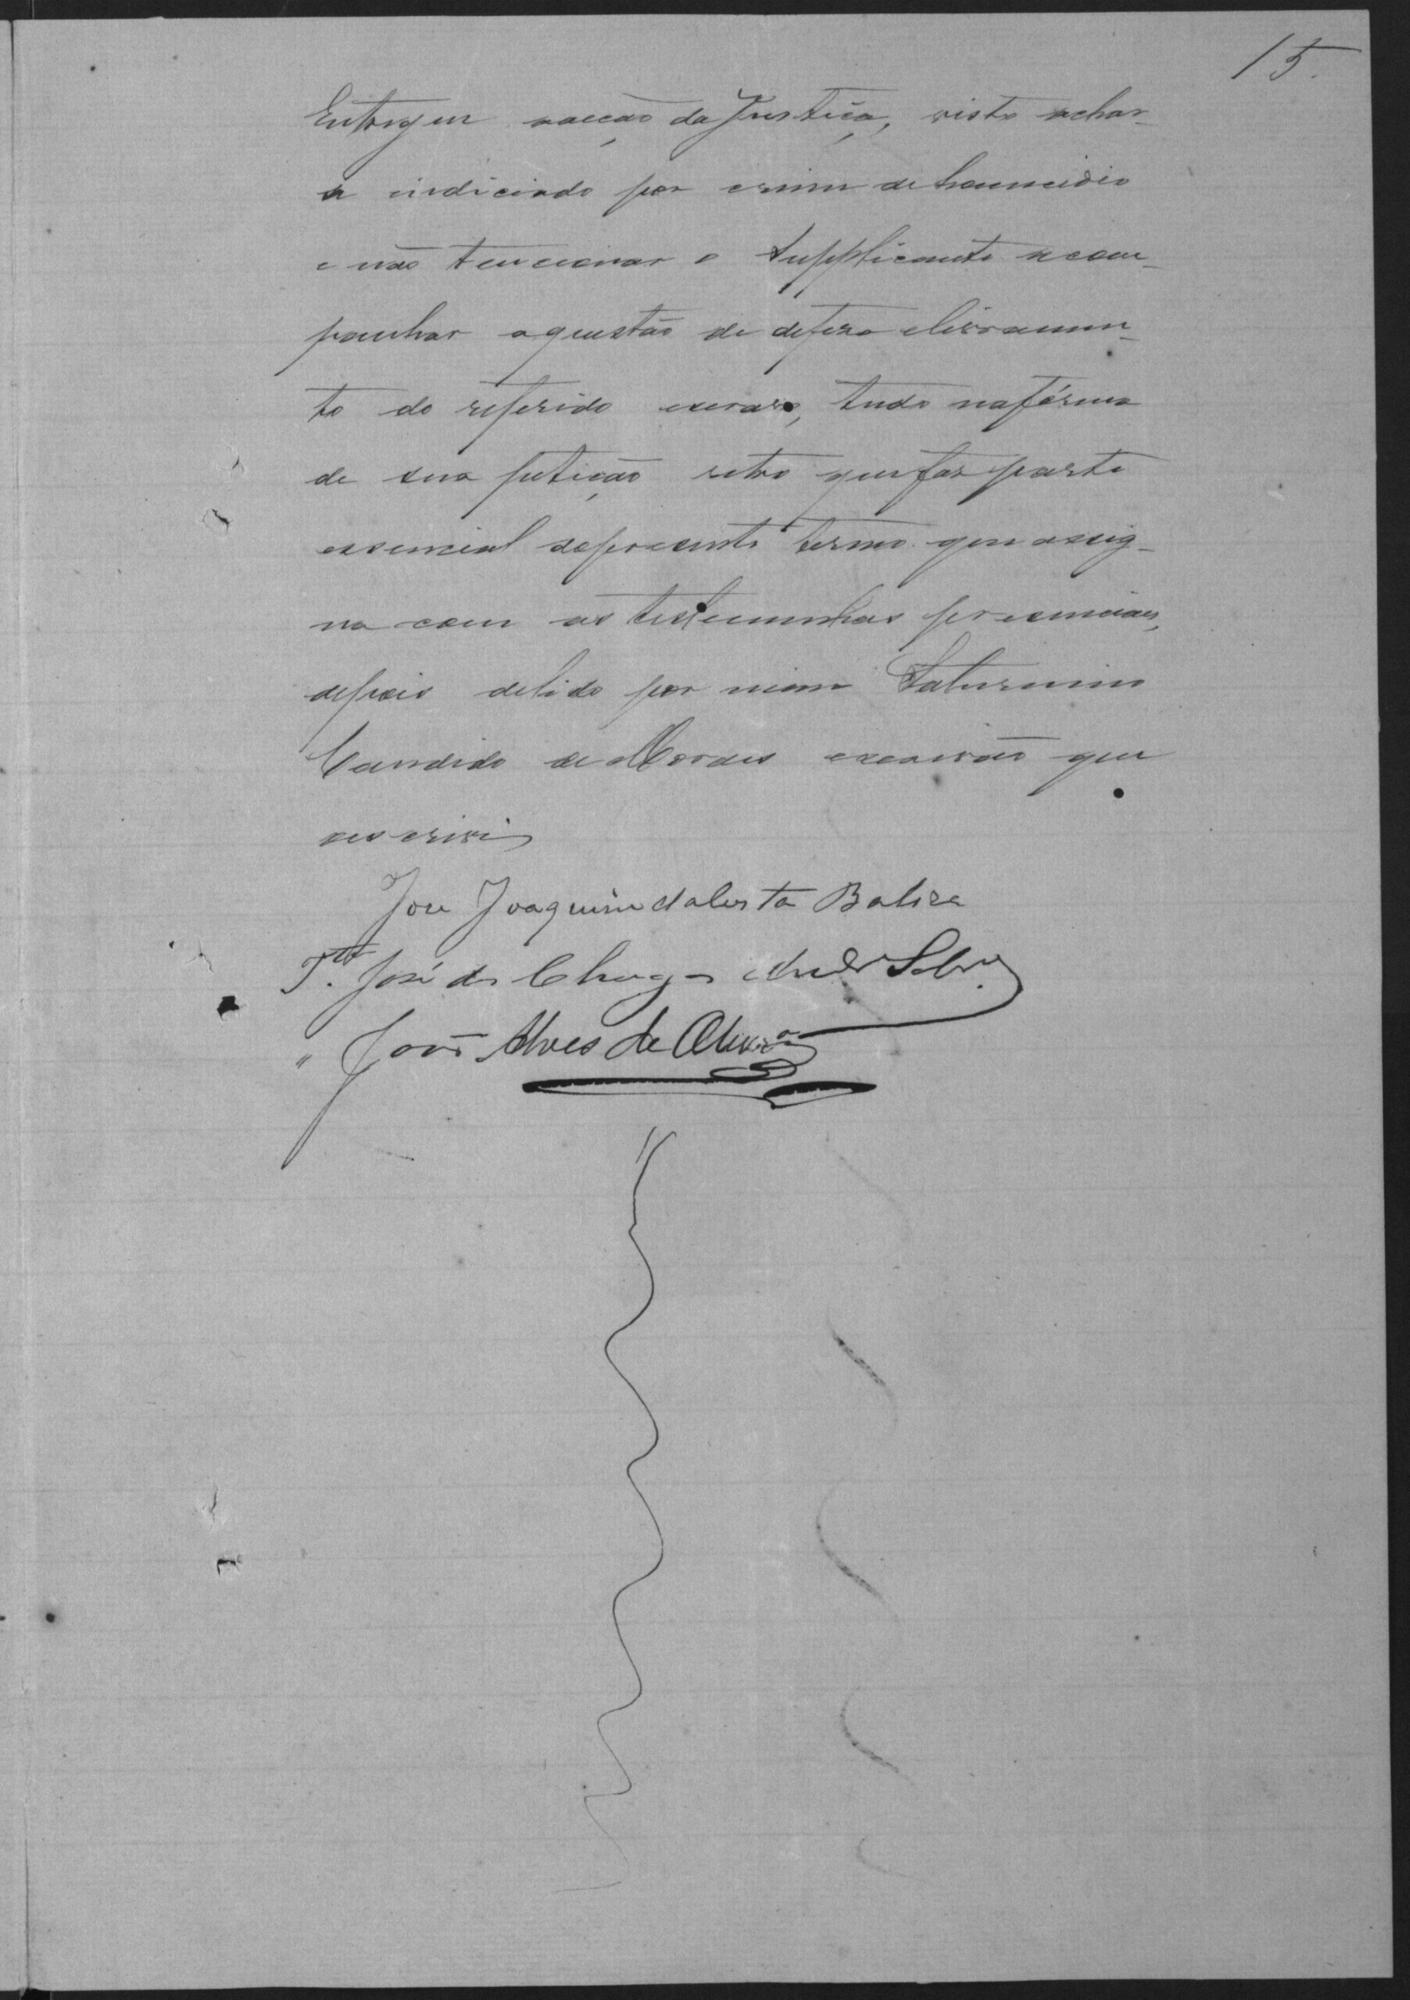 15.
Entregue a acção da Justiça, visto achar-
se indiciado por crime de homicidio
e não tencionar o Supplicante acom-
panhar a questão de defeza e livramen-
to do referido escravo, tudo na fórma
de sua petição retro que faz parte
essencial do presente termo que assig-
na com as testemunhas presenciaes,
depois de lido por mim Saturnino
Candido de Moraes escrivão que
escrivi
José Joaquim da Costa Baliza
T.ta José das Chagas Silva
" João Alves de Oliveira